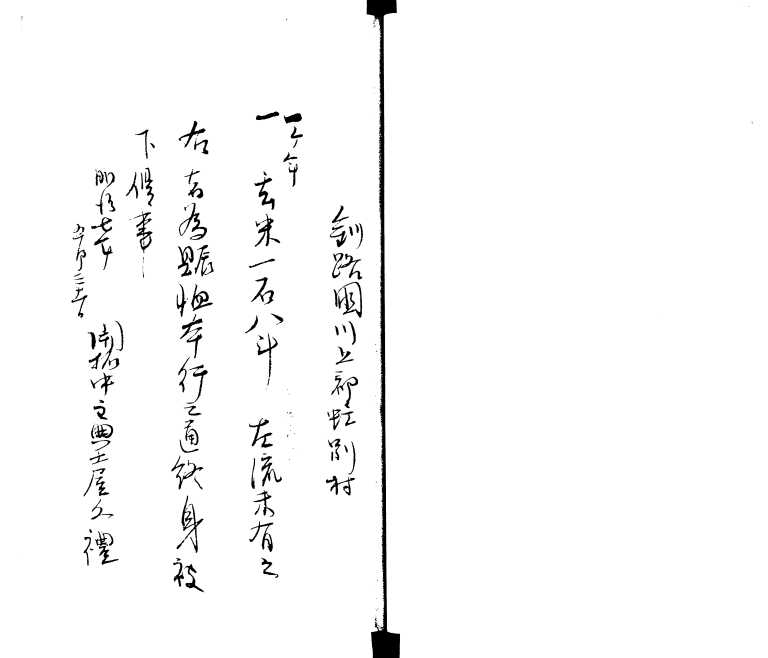 釧路国川上郡虹別村
一ケ年
一 玄米一石八斗 左流未有之
右者為賑恤本行之通終身被
下候事
明治七年
五月三十一日
開拓中主典土屋久禮